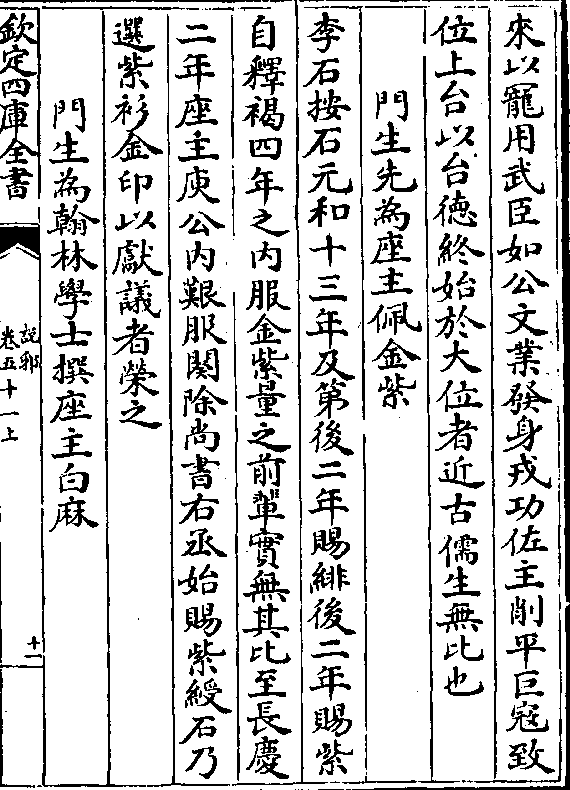 來以寵用武臣如公文業發身戎功佐主削平巨寇致
位上台以台德終始於大位者近古儒生無比也
門生先為座主佩金紫
李石按石元和十三年及第後二年賜緋後二年賜紫
自釋褐四年之内服金紫量之前輩實無其比至長慶
二年座主庾公内艱服闋除尚書右丞始賜紫綬石乃
選紫衫金印以獻議者榮之
門生為翰林學士撰座主白麻
欽定四庫全書
説郛
卷五十一上
十一